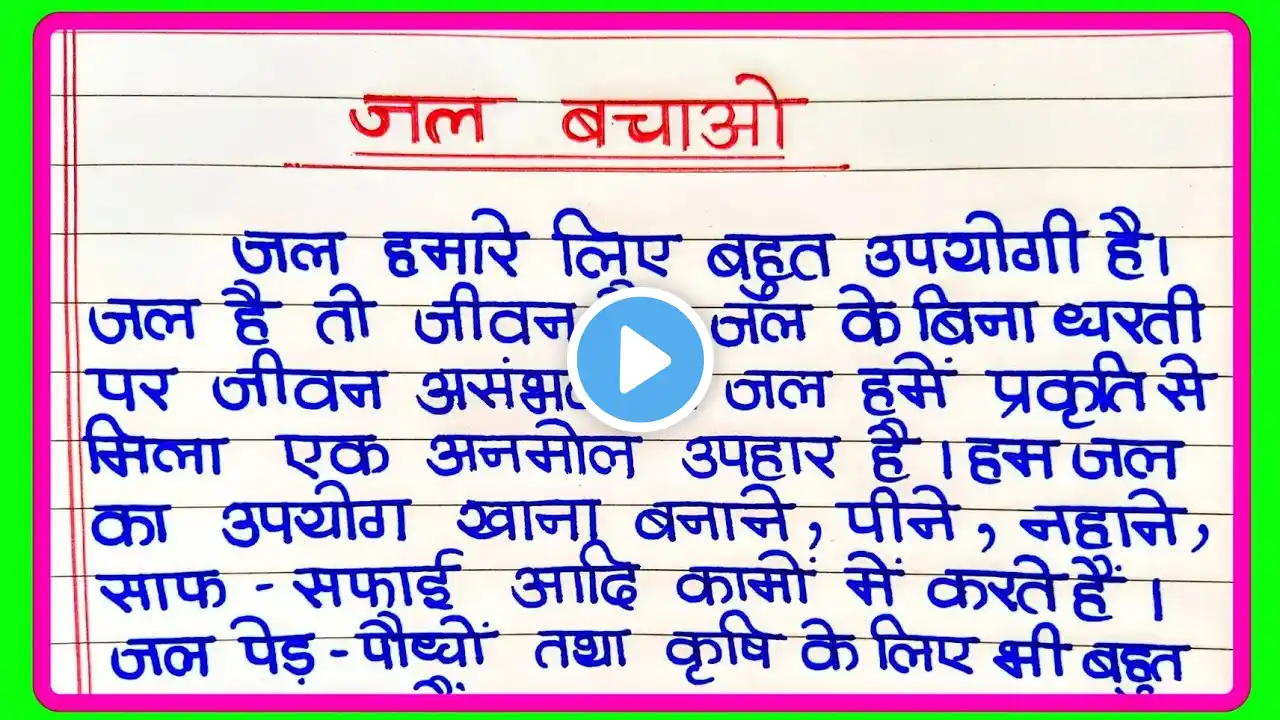 जल बचाओ
जल हमारे लिए बहुत उपयोगी है।
जल है तो जीवन जल के बिना धरती
पर जीवन जल हमें प्रकृति से
मिला एक अनमोल उपहार है । हम जल
का उपयोग खाना बनाने, पीने, नहाने,
साफ - सफाई आदि कामों में करते हैं ।
जल पेड़ - पौधों तथा कृषि के लिए भी बहुत